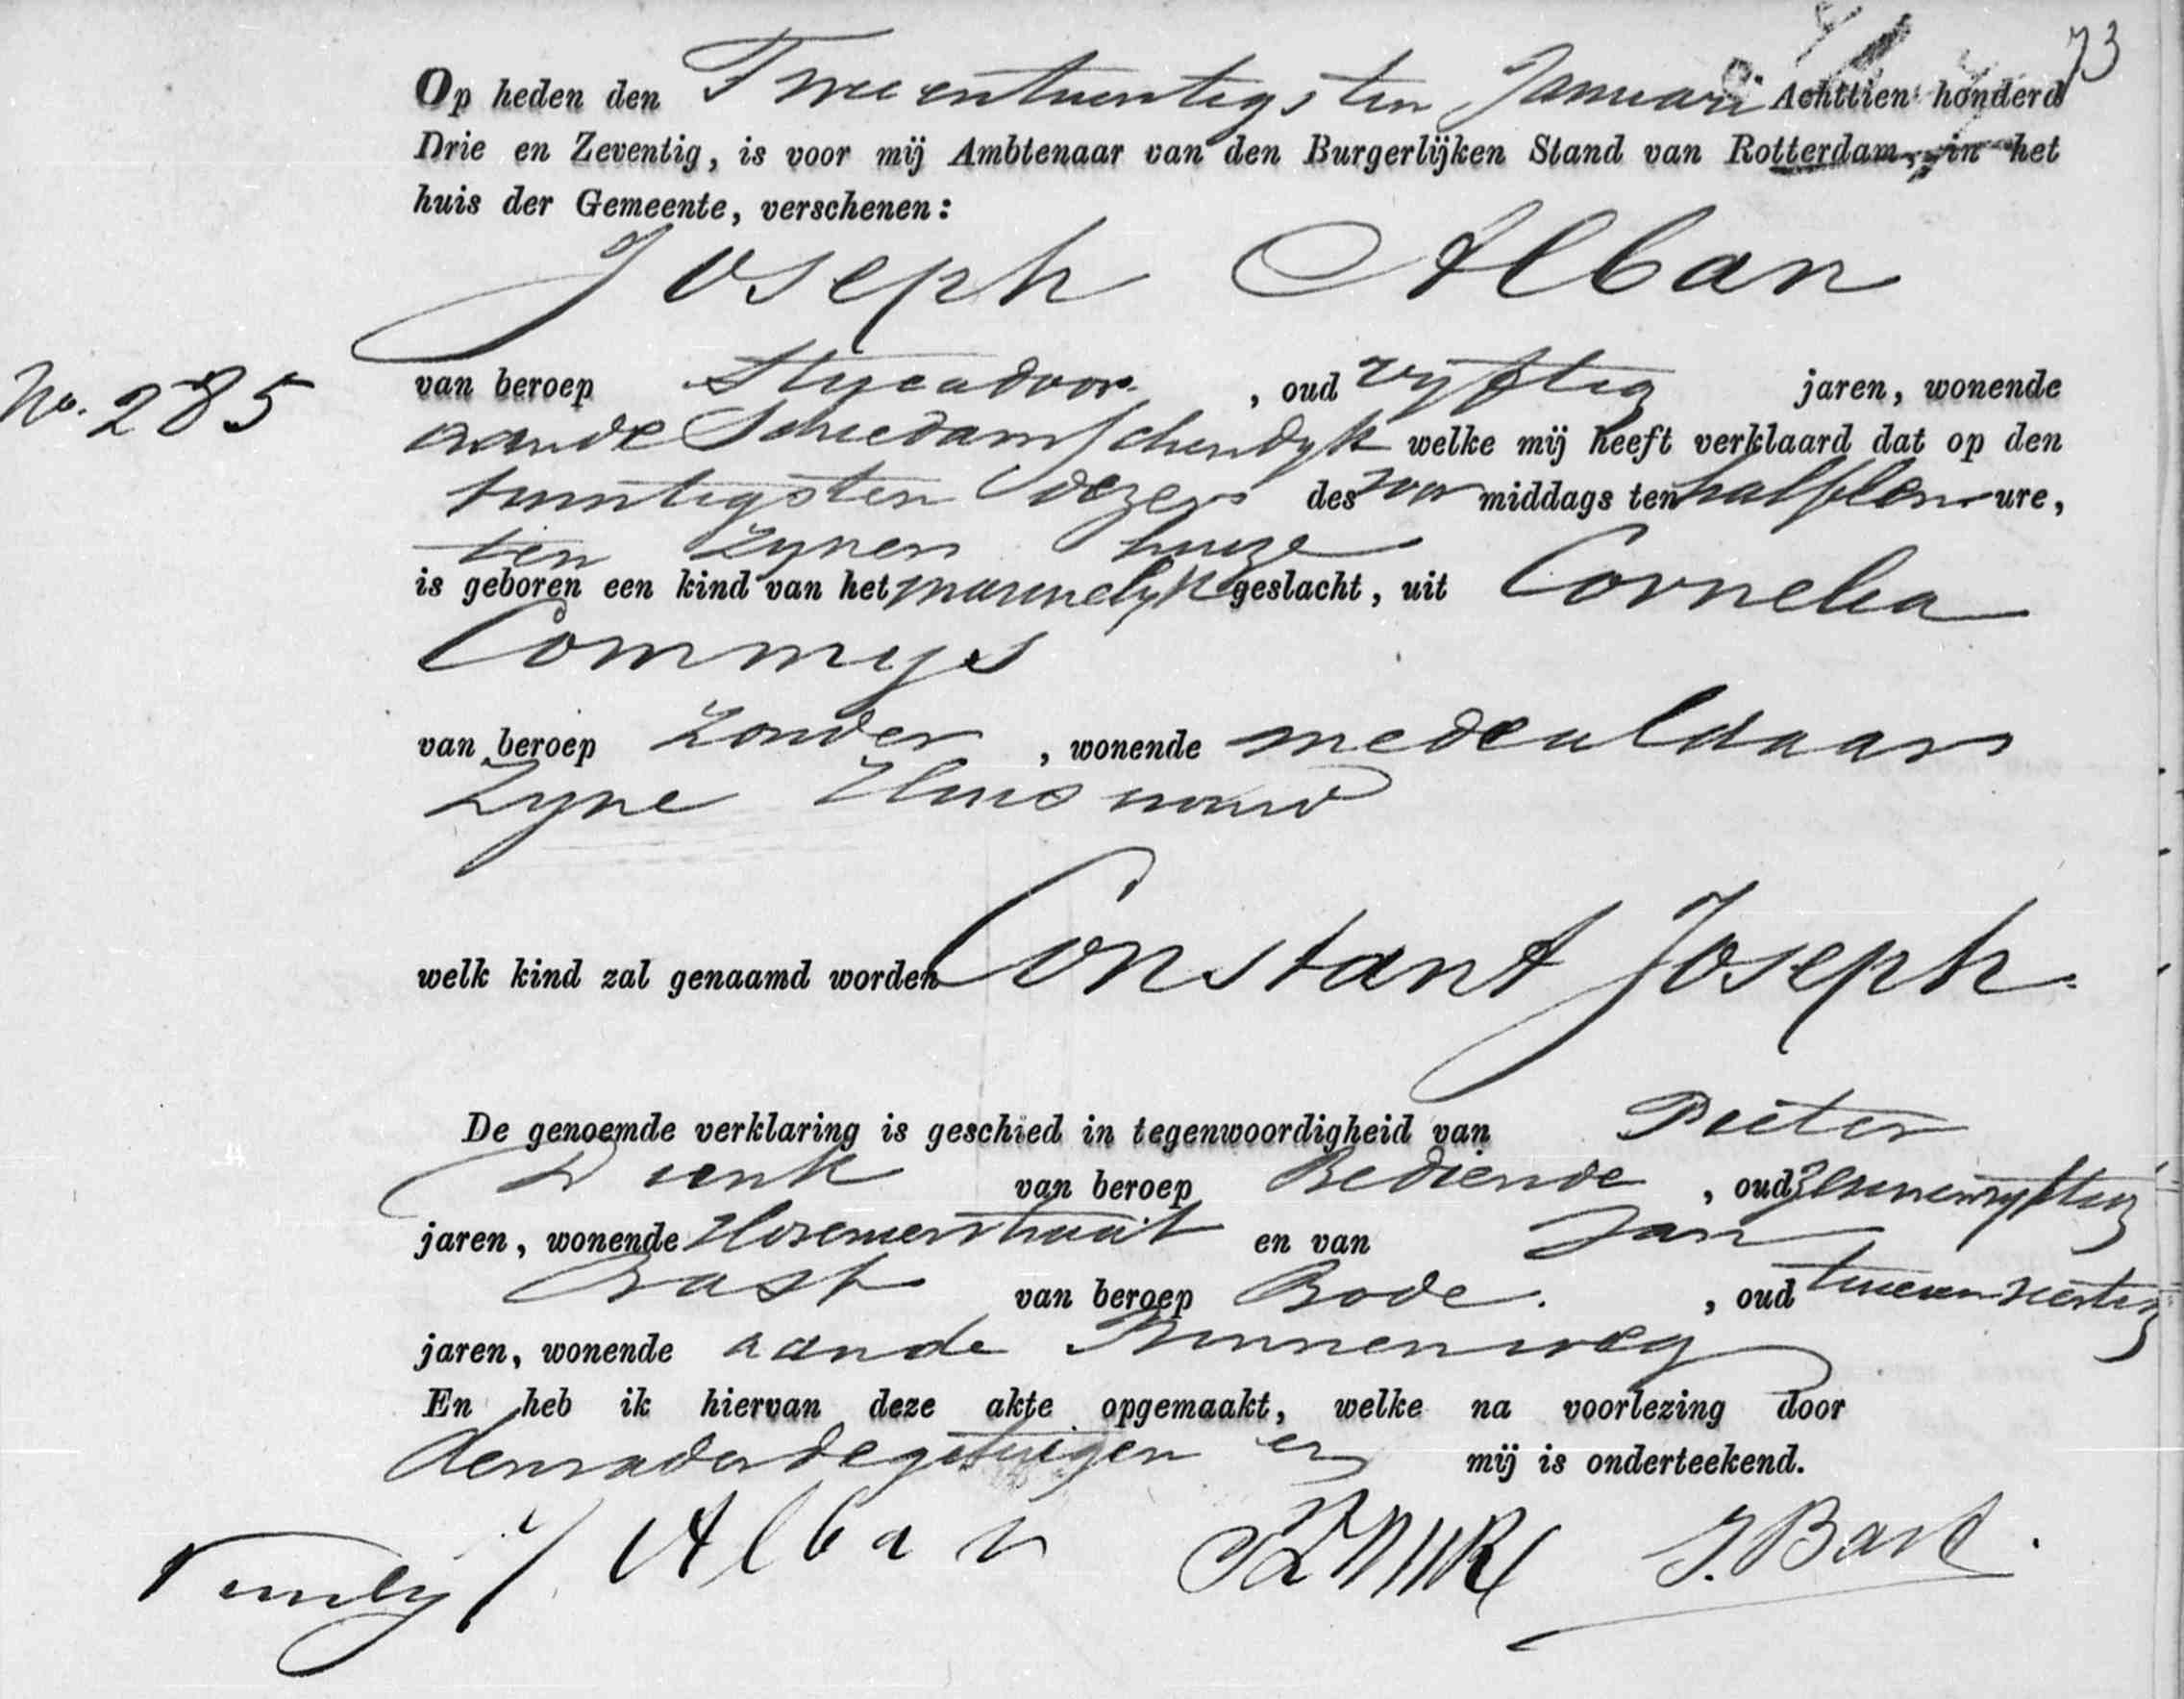 73
Op heden den Twee en twentigsten Januari Achttien honderd
Drie en Zeventig, is voor mij Ambtenaar van den Burgerlijken Stand van Rotterdam, in het
huis der Gemeente, verschenen:
Joseph Alban
No. 285
van beroep , oud vyftig jaren, wonende
aan de Schiedamschendyk welke mij heeft verklaard dat op den
twintigsten dezer des voor middags ten half ure,
ten zynen huize
is geboren een kind van het mannelyk geslacht, uit Cornelia
Commys
van beroep Zonder , wonende mede aldaar
Zyne Huisvrouw
welk kind zal genaamd worden Constant Joseph.
De genoemde verklaring is geschied in tegenwoordigheid van Pieter
van beroep Bediende , oud
jaren, wonende en van Jan
Bast van beroep Bode. , oud twee en veertig
jaren, wonende aan de Binnenweg
En heb ik hiervan deze akte opgemaakt, welke na voorlezing door
den vader de getuigen en mij is onderteekend.
J Alban J. Bast.